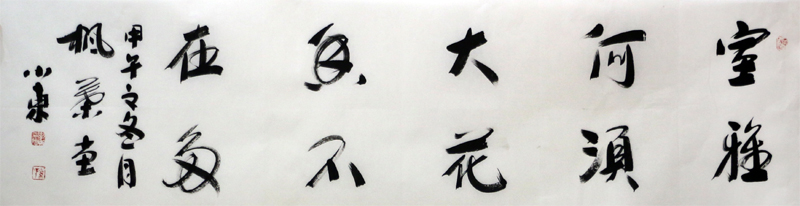 室雅
何須
大花
香不
在多
甲午之冬月
堂
小